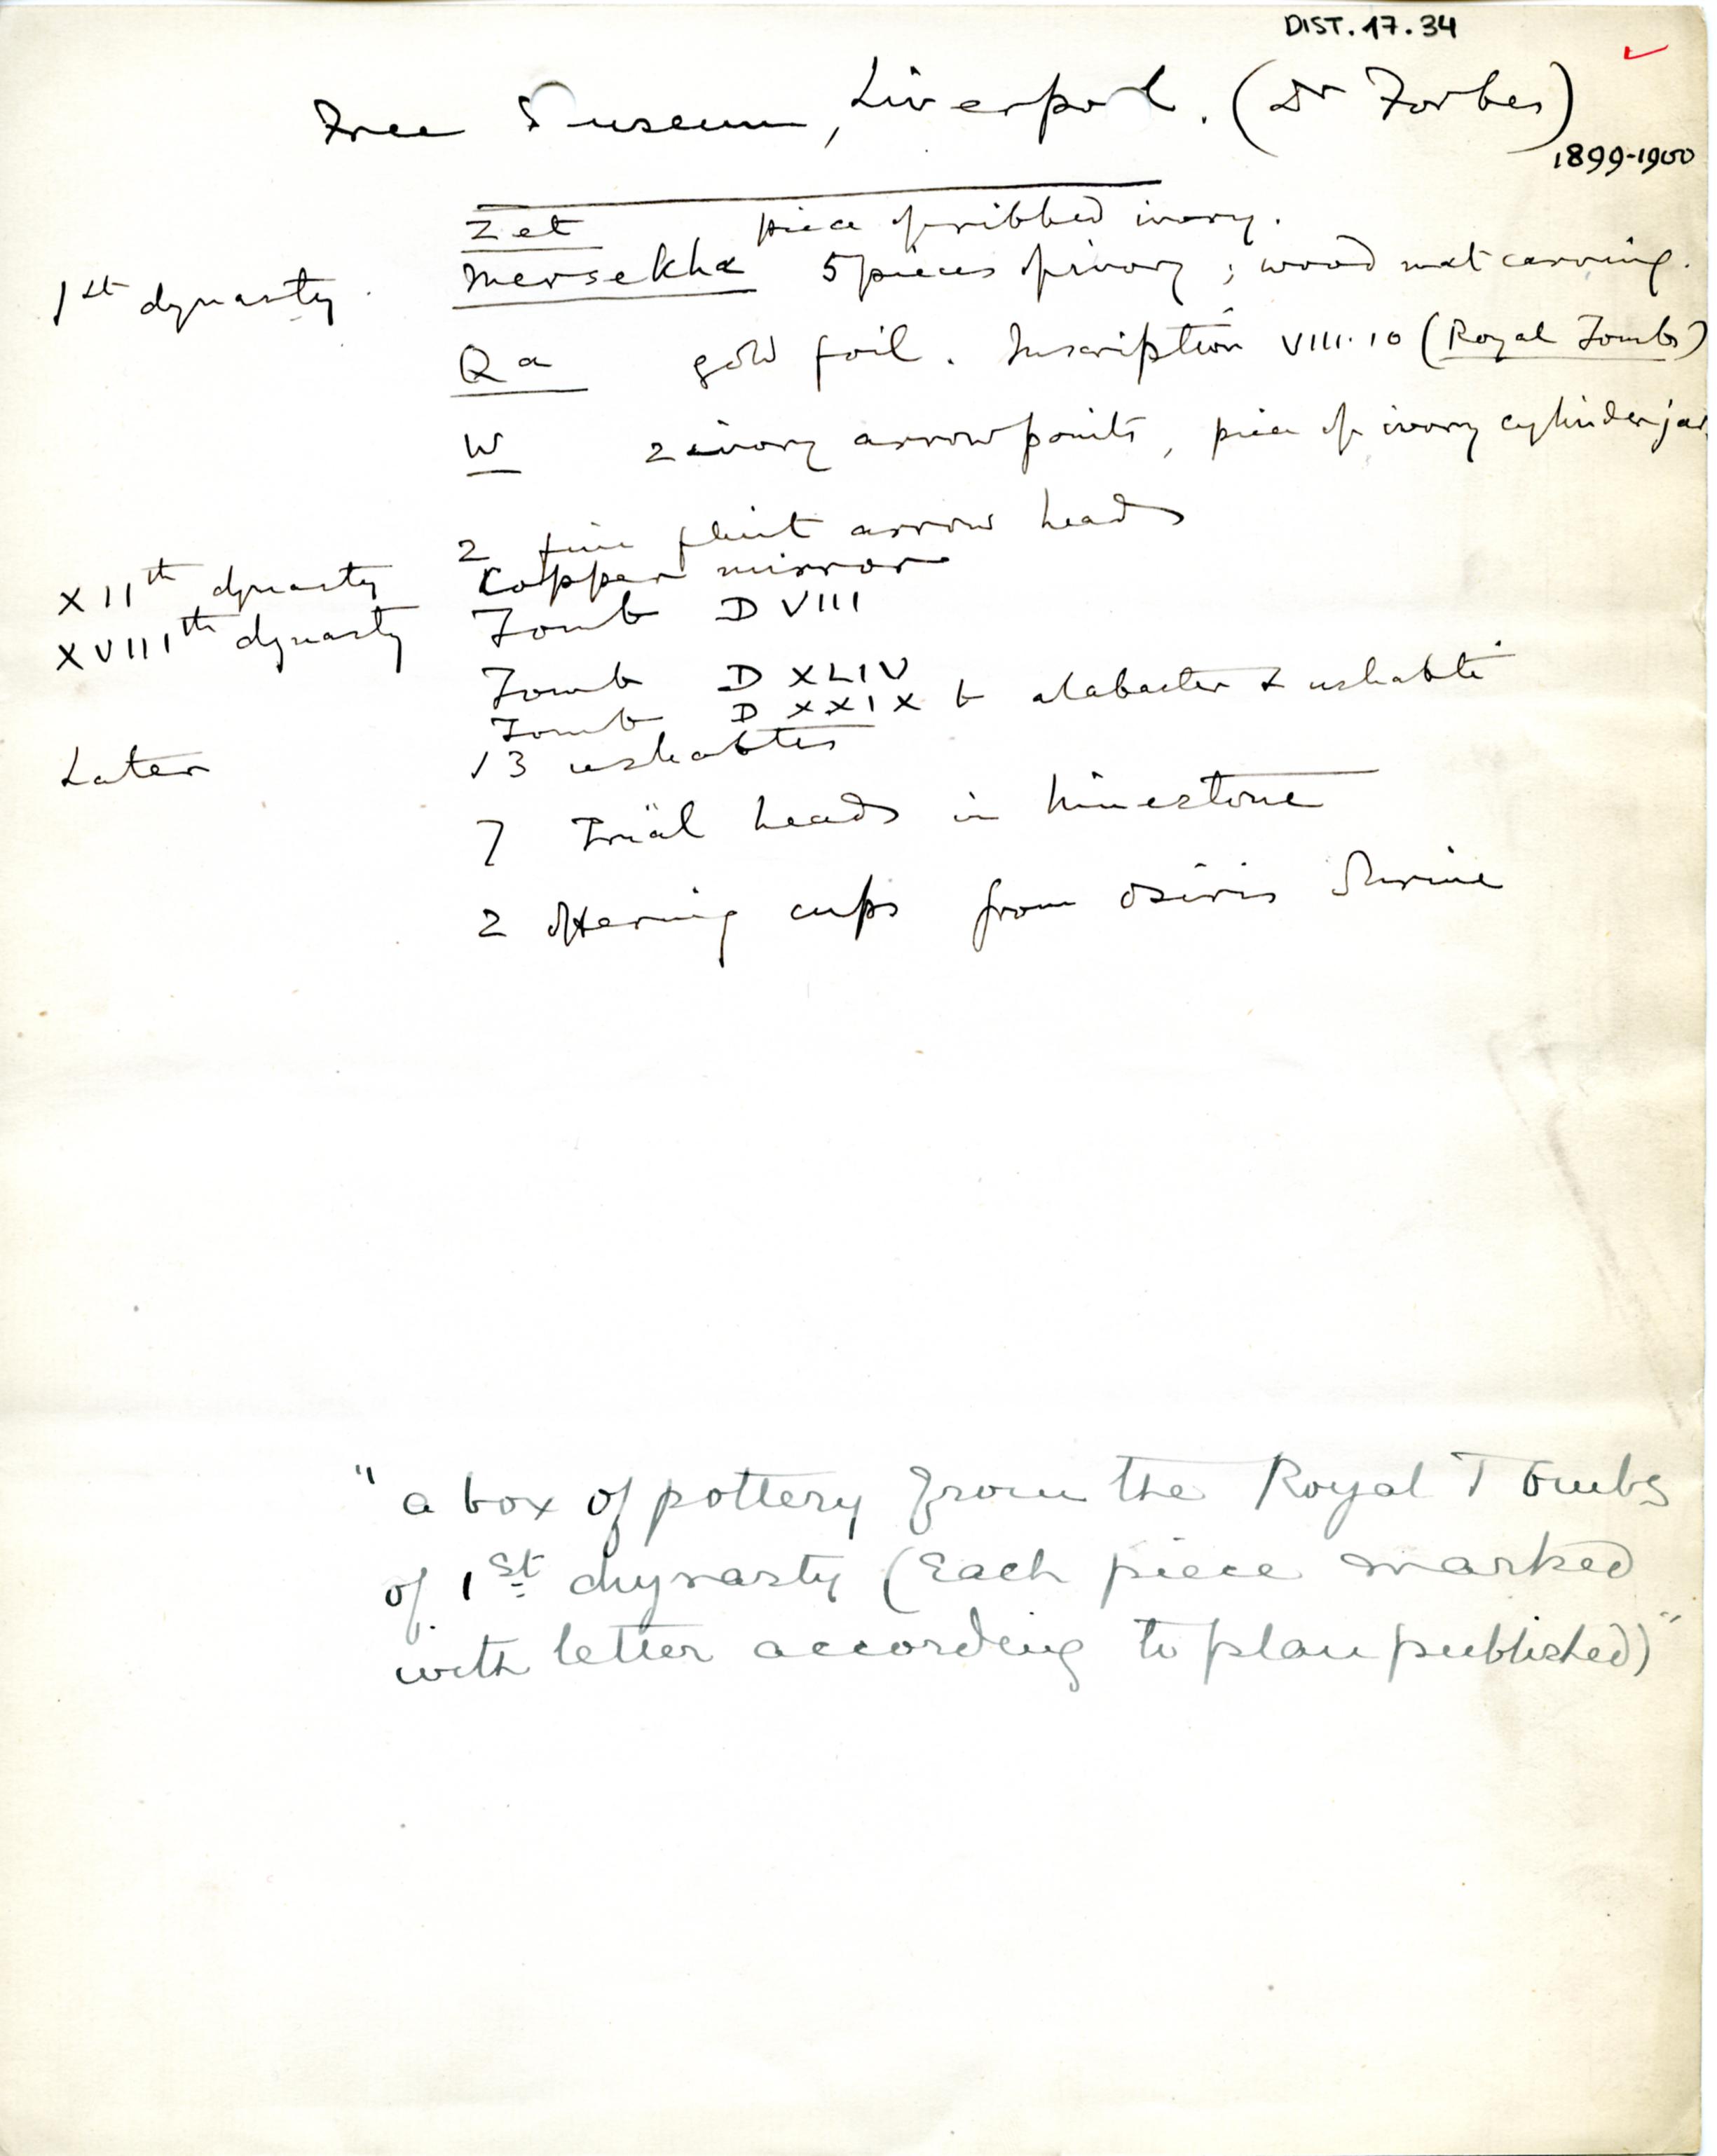 DIST. 17. 34
Free Museum, Liverpool. (Dr Forbes)
1899-1900
Zet piece of ribbed ivory.
1st dynasty. Mersekha 5 pieces of ivory ; wood mat carving.
Qa gold foil. Inscription VIII.10 (Royal Tombs)
W 2 ivory arrow points, piece of ivory cylinder jar
2 fine flint arrow heads
XIIth dynasty Copper mirror
XVIIIth dynasty Tomb D VIII
Tomb D XLIV
Tomb D XXIX b alabaster & ushabti
Later 13 ushabtis
7 Trial heads in limestone
2 offering cups from Osiris Shrine
"a box of pottery from the Royal Tombs
of 1st dynasty (Each piece marked
with letter according to plan published)"